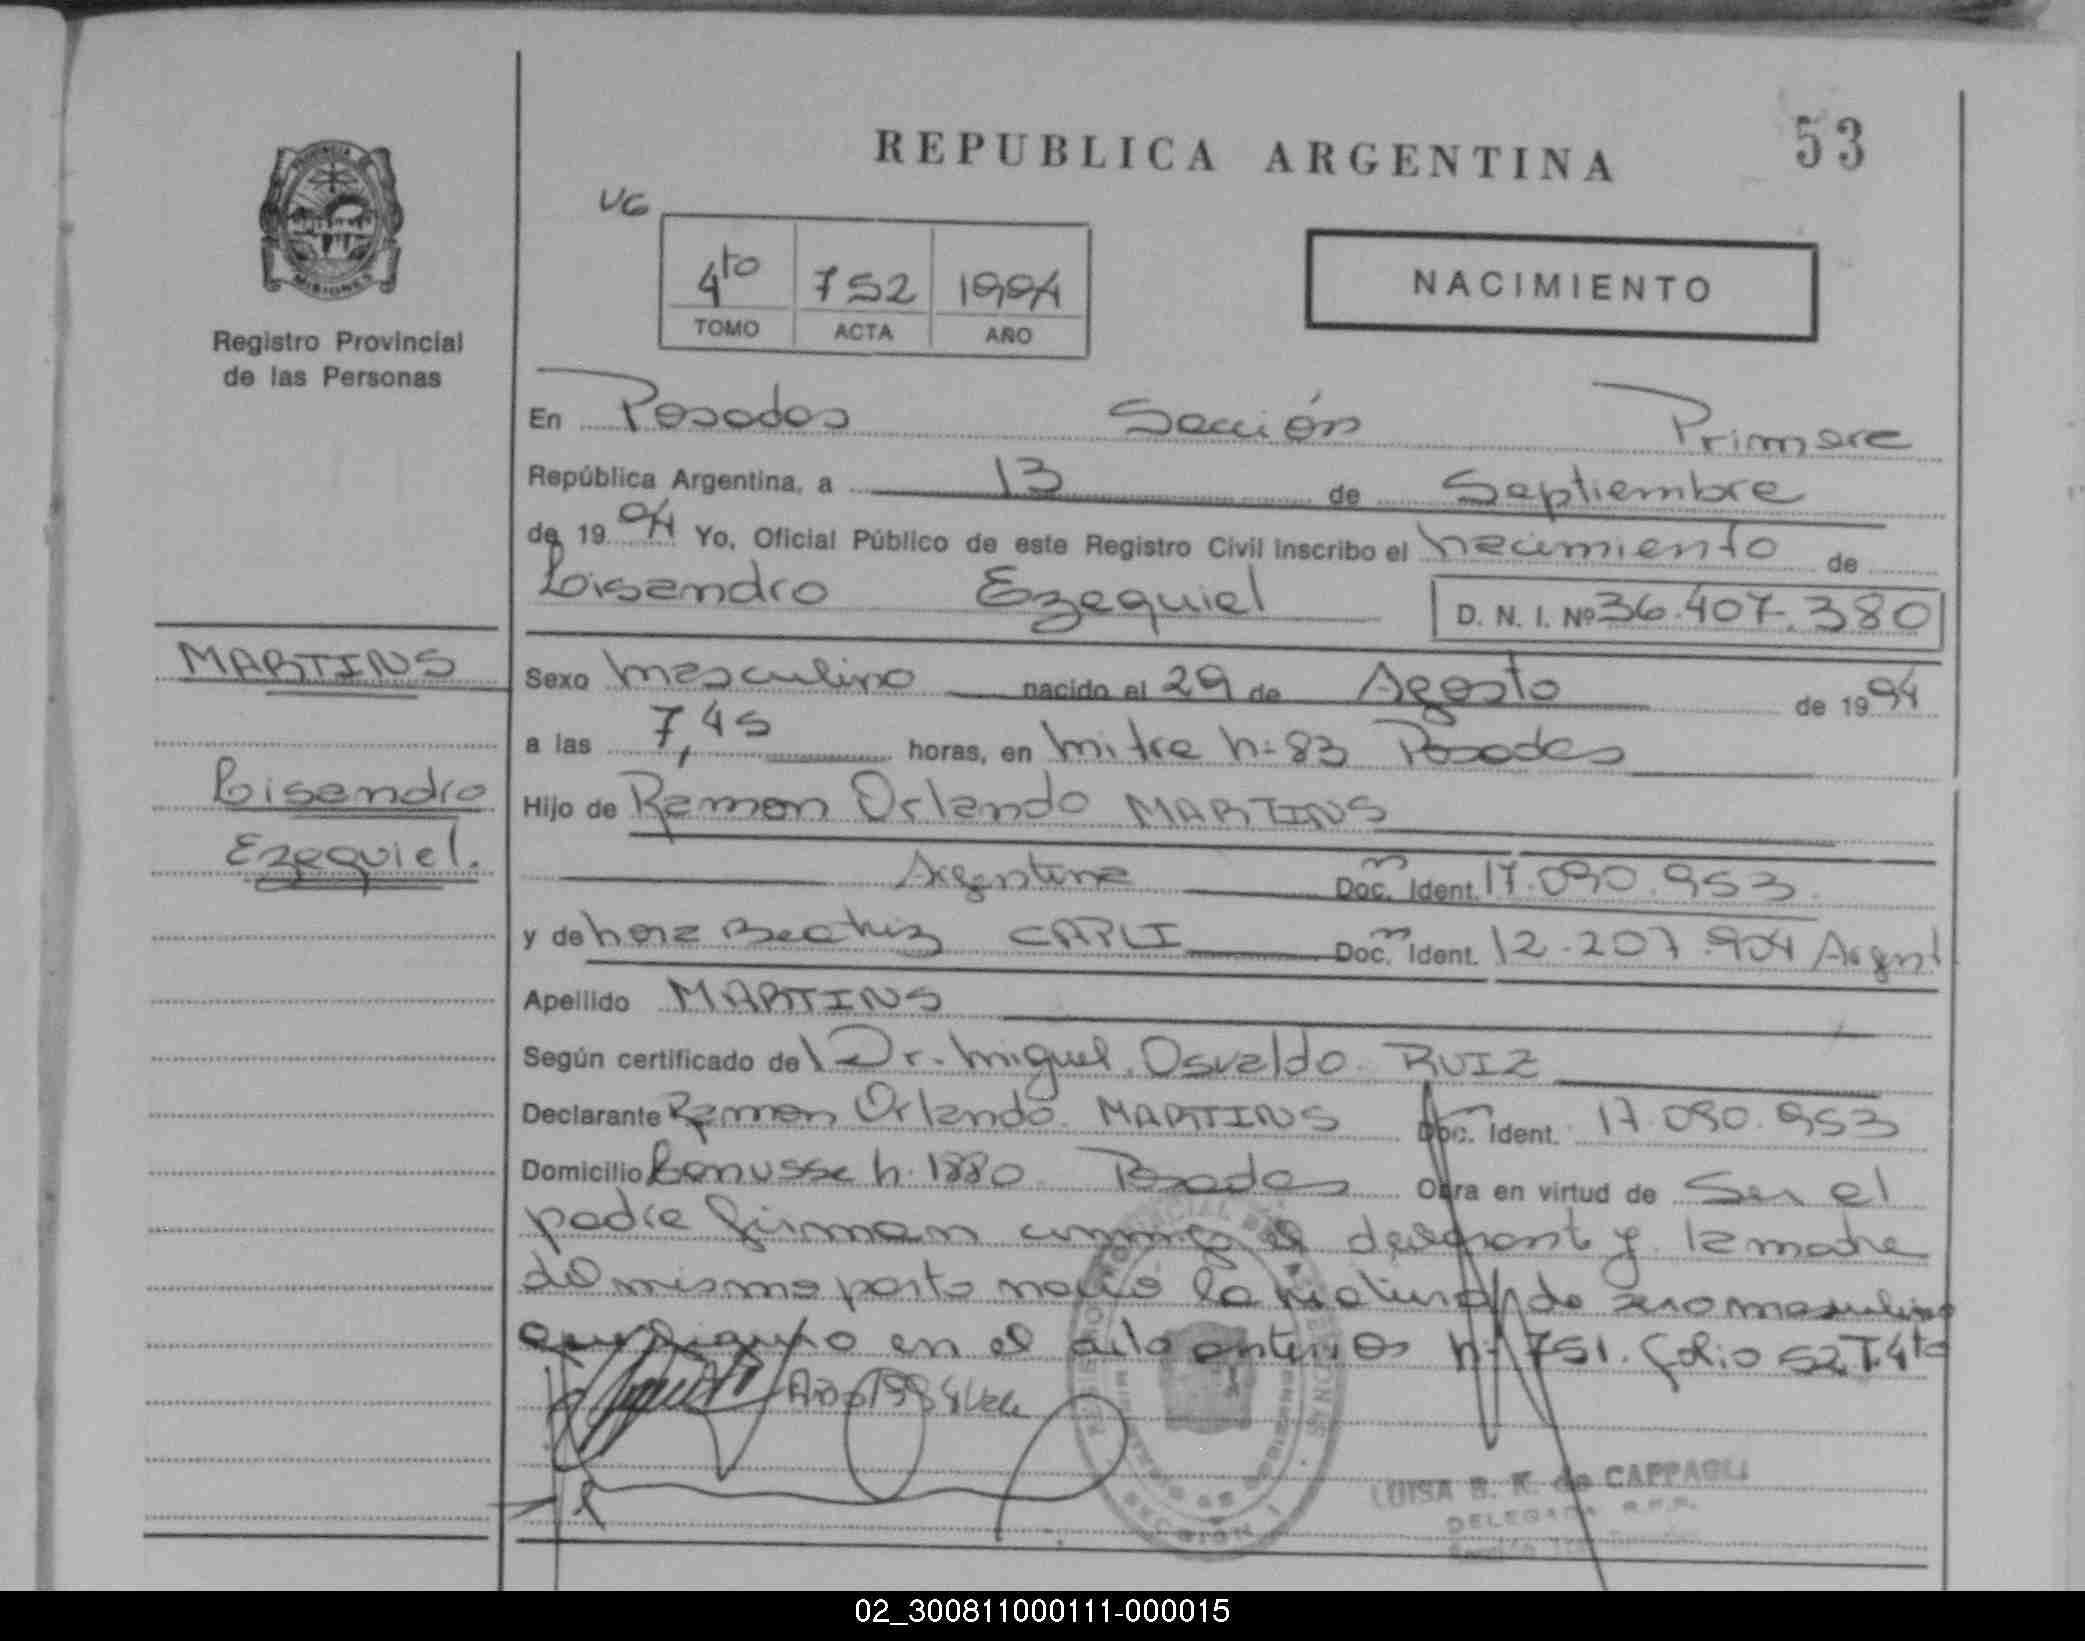 REPUBLICA ARGENTINA
53
VG
4to 752 1994
TOMO ACTA AÑO
NACIMIENTO
PROVINCIA DE
MISIONES
Registro Provincial
de las Personas
En Posadas Sección Primera
República Argentina, a 13 de Septiembre
de 1994 Yo, Oficial Público de este Registro Civil inscribo el nacimiento de
Lisandro Ezequiel D. N. I. Nº 36.407.380
MARTINS
Lisandro
Ezequiel.
Sexo masculino nacido el 29 de Agosto de 1994
a las 7,45 horas, en mitre n: 83 Posadas
Hijo de Ramon Orlando MARTINS
Argentina Doc. Ident. 17.090.953
y de nora Beatriz CAPLI Doc. Ident. 12.207.904 Argent
Apellido MARTINS
Según certificado del Dr. miguel Osvaldo RUIZ
Declarante Ramon Orlando MARTINS Doc. Ident. 17.090.953
Domicilio n. 1880 Posadas Obra en virtud de Ser el
padre firman conmigo el y la madre
del mismo parto nacio la de sexo masculino
en el acta anterior n: 751. folio 52 T. 4to
Año 1994
REGISTRO PROVINCIAL DE LAS PERSONAS
MINISTERIO DE GOBIERNO
SECCION 1
LUISA B. K. de CAPPAGLI
DELEGADA R.P.P.
02_300811000111-000015